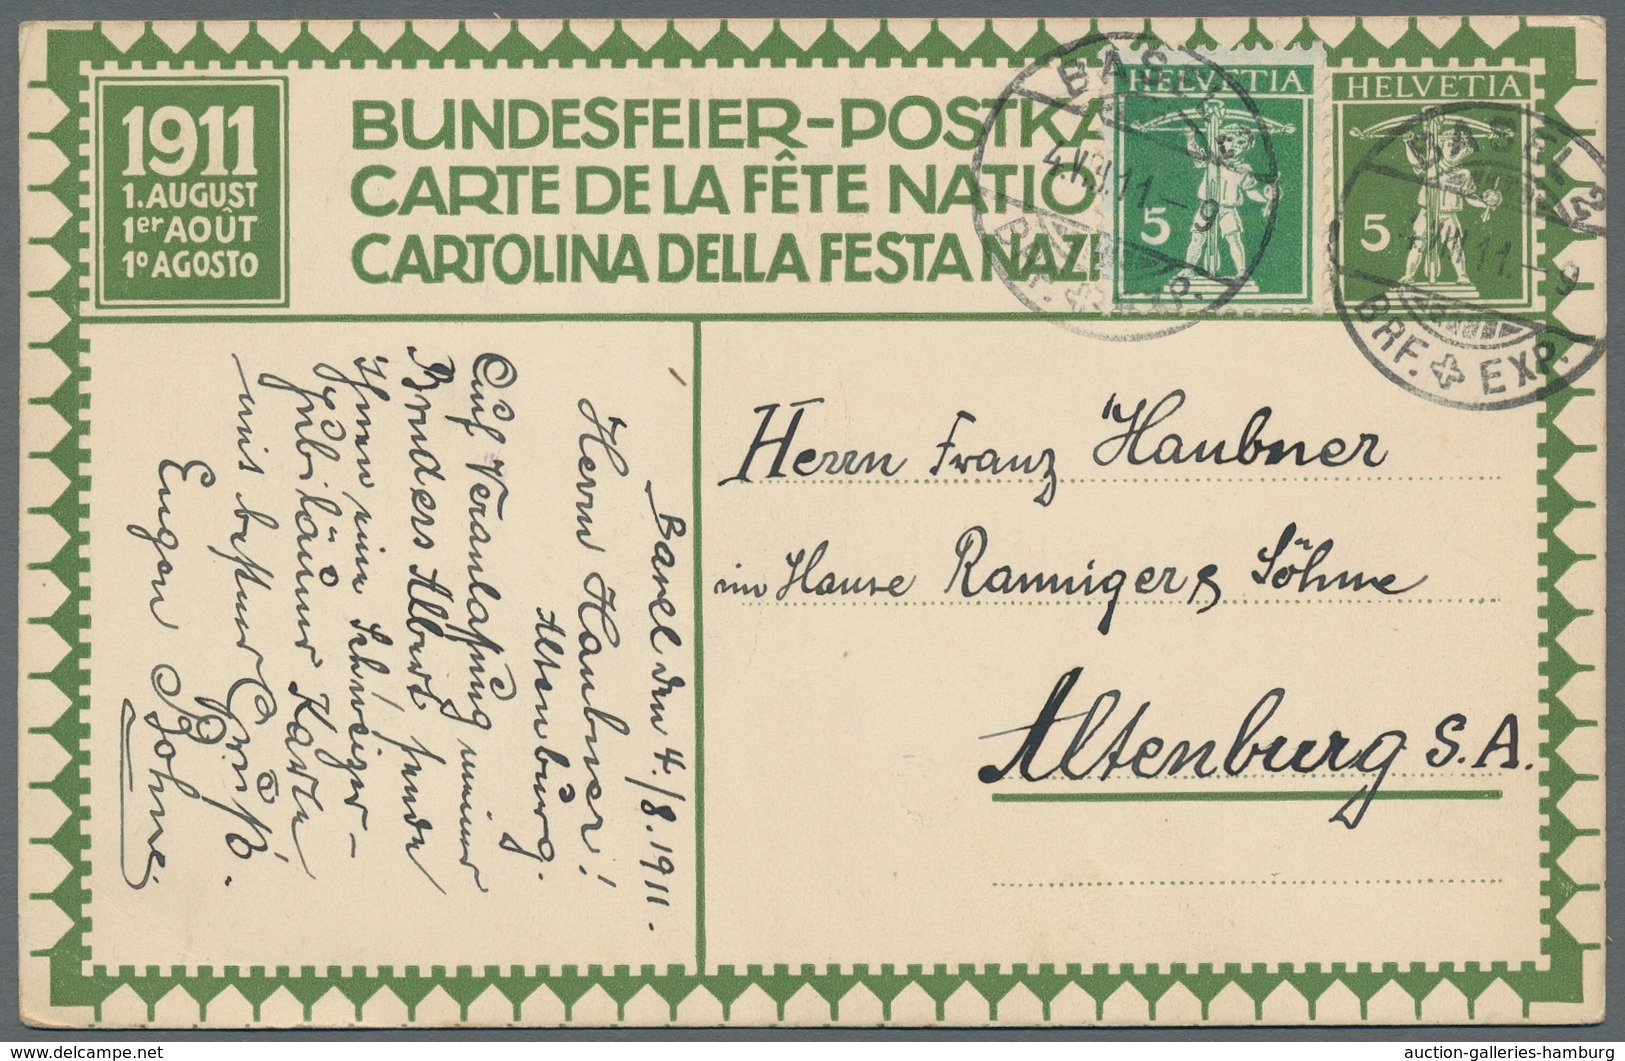 1911
1. AUGUST
1er AOÛT
1º AGOSTO
BUNDESFEIER-POSTKA
CARTE DE LA FÊTE NATIO
CARTOLINA DELLA FESTA NAZI
HELVETIA
5
HELVETIA
5
BASEL 2
4.VIII.11.-9
BRF. EXP.
BASEL 2
4.VIII.11.-9
BRF. EXP.
Basel den 4./8. 1911.
Herrn Haubner!
Altenburg.
Auf Veranlaßung meines
Bruders Albert sende
Ihnen eine Schweizer-
Jubiläums Karte
mit bestem Gruß.
Eugen Böhme
Herrn Franz Haubner
im Hause Ranniger & Söhne
Altenburg S.A.
auction-galleries-hamburg
auction-galleries-hamburg